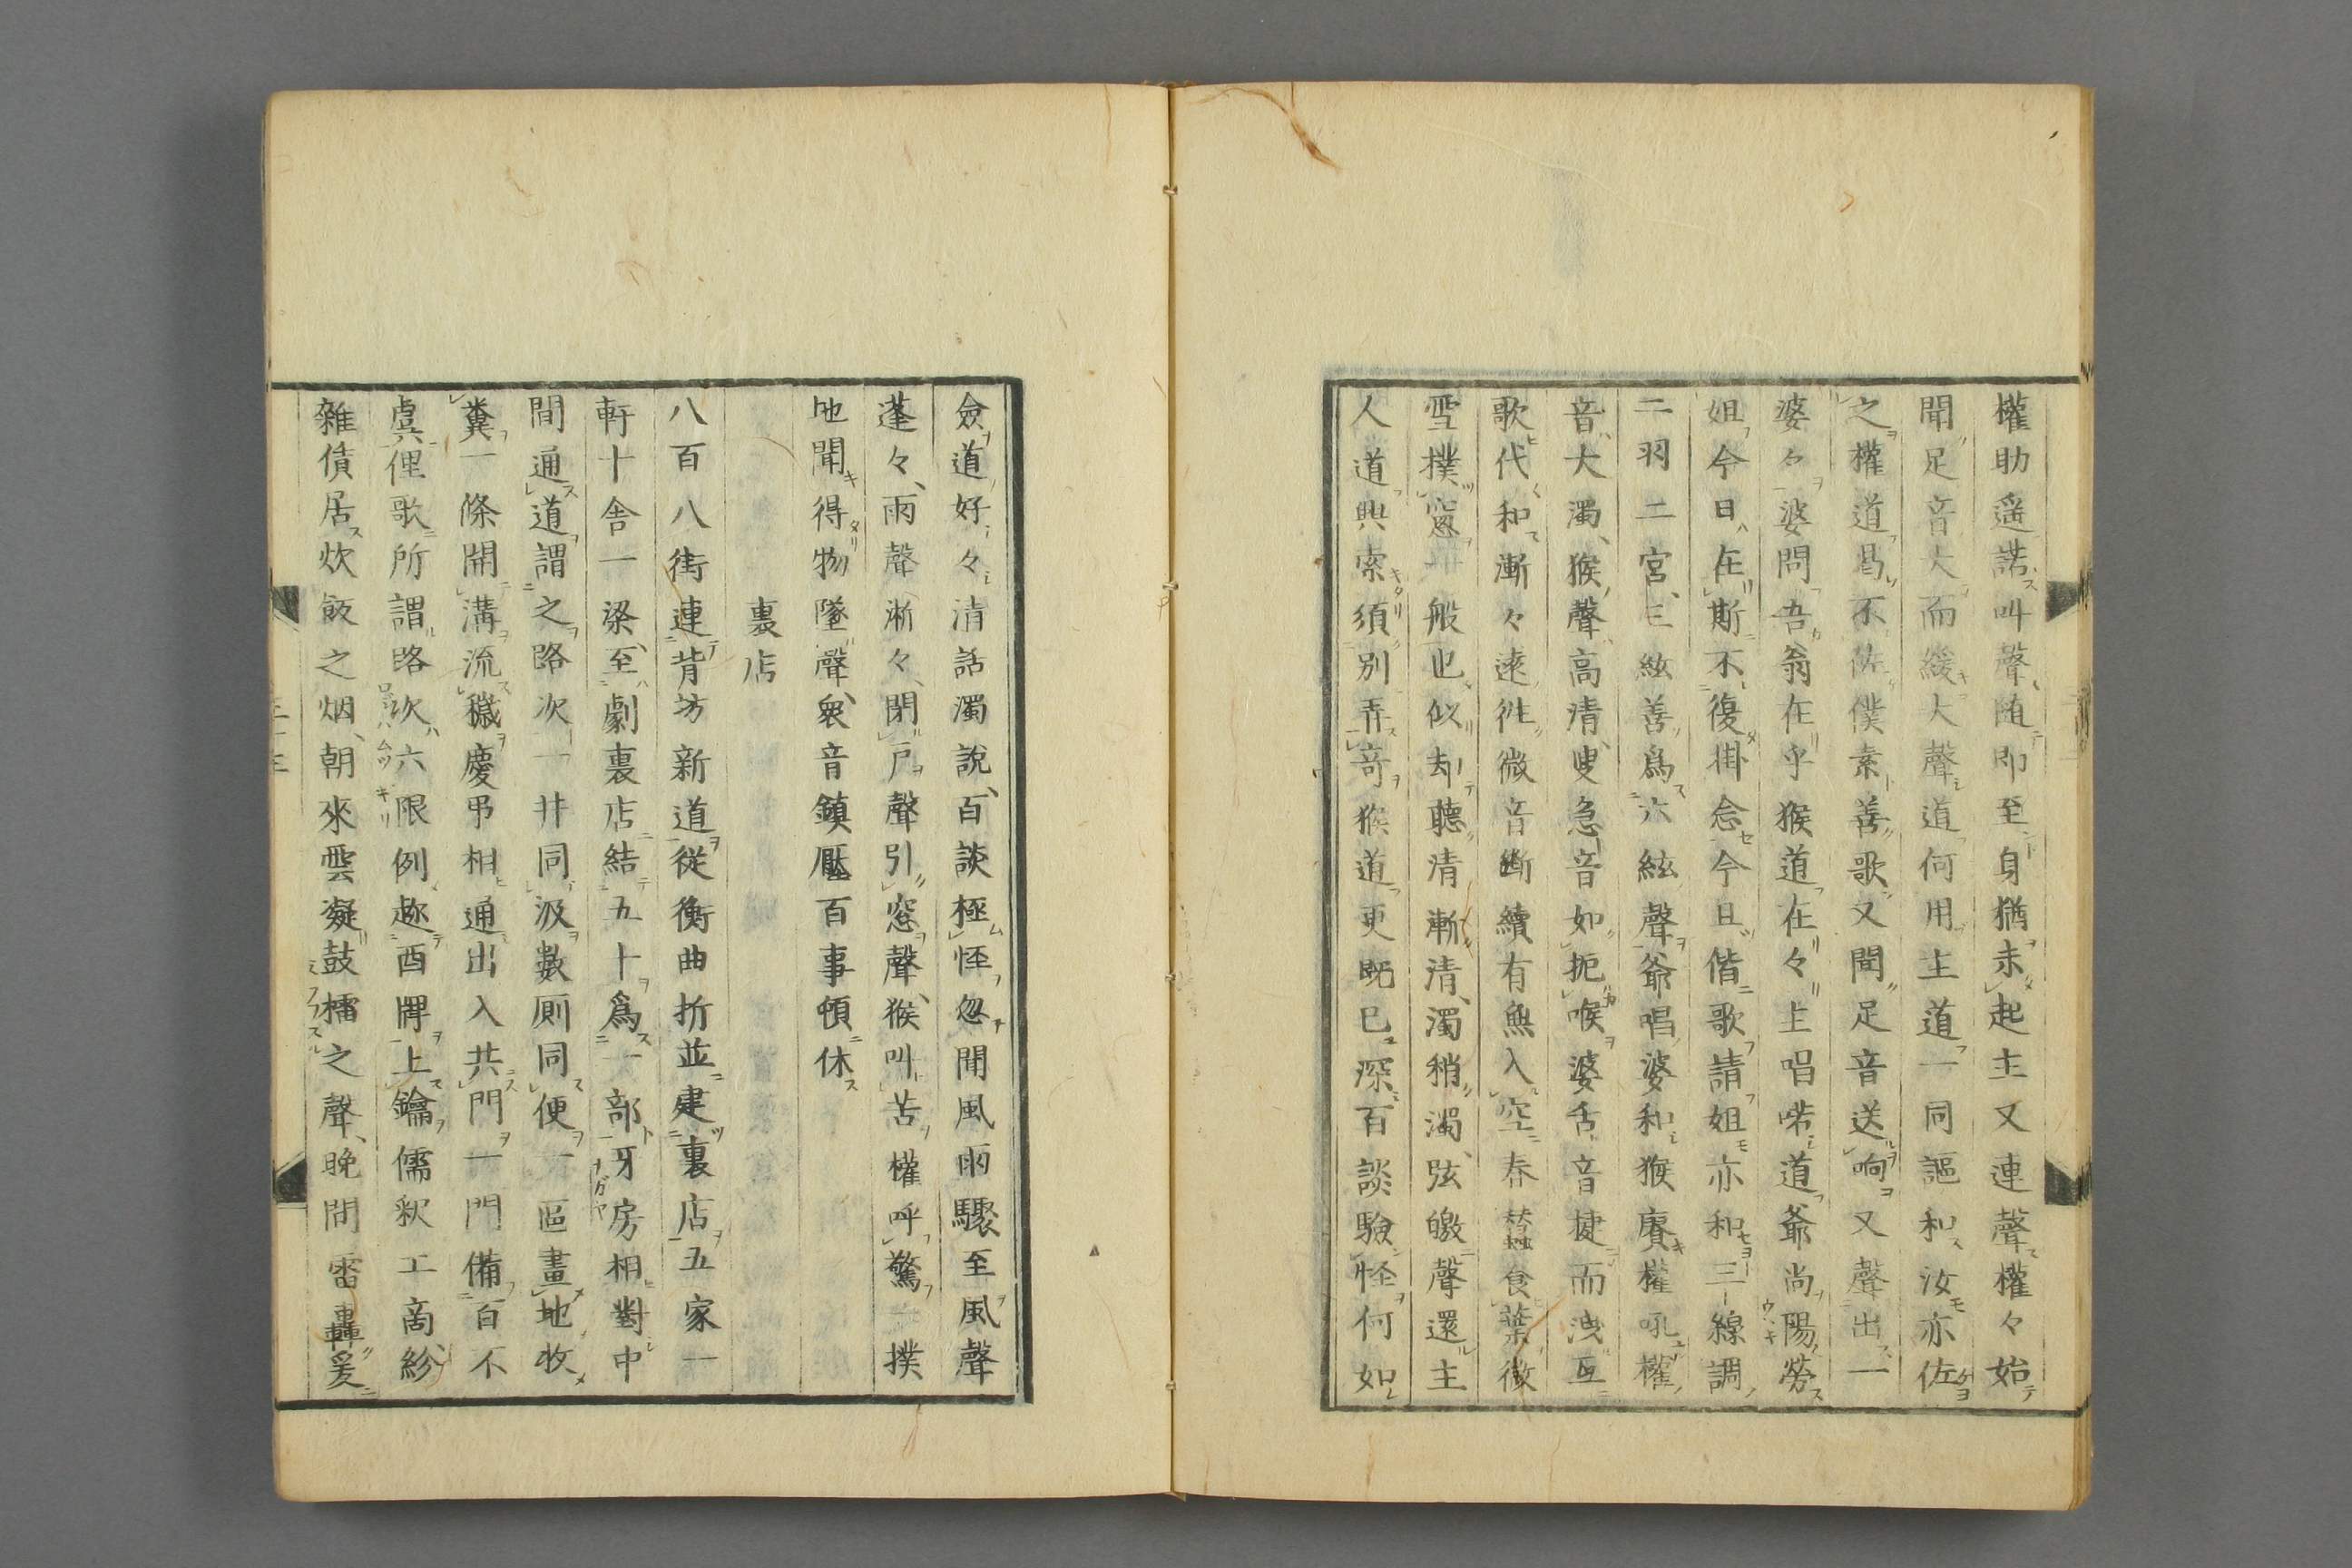 權助遥諾叫聲随即至身猶未起主又連聲權々始
聞足音大而緩大聲道何用主道一同謳和汝亦佐
之權道曷不佐僕素善歌又聞足音送响又聲出一
婆々婆問吾翁在乎猴道在々上唱喏道爺尚陽勞
姐今日在斯不復掛念今且偕歌請姐亦和三線調
二羽二宮三絃善爲六絃聲爺唱婆和猴賡權吼權
音大濁猴聲高清叟急音如扼喉婆舌音捷而洩互
歌代和漸々遠徃微音斷續有無入空春蠶食葉微
雪撲窓一般也似却聽清漸清濁稍濁弦皦聲還主
人道興索須別弄奇猴道更既已深百談驗怪何如
僉道好々清話濁說百談極怪忽聞風雨驟至風聲
蓬々雨聲淅々閉戸聲引窓聲猴叫苦權呼驚一撲
地聞得物墜聲衆音鎮壓百事頓休
裏店
八百八街連背坊新道從衡曲折並建裏店五家一
軒十舎一梁至劇裏店結五十爲一部牙房相對中
間通道謂之路次一井同汲數厠同便一區畫地牧
糞一條開溝流穢慶弔相通出入共門一門備百不
虞俚歌所謂路次六限例趂酉牌上鑰儒釈工商紛
雜僓居炊飯之烟朝來雲凝鼓檑之聲晩間雷轟爰